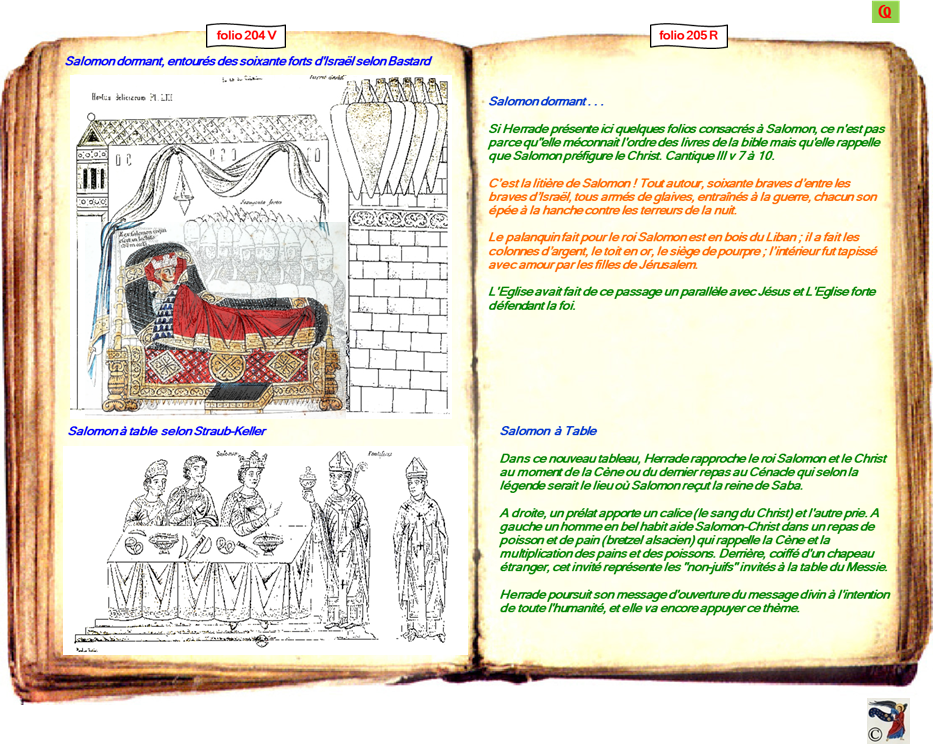 folio 204 V
Salomon dormant, entourés des soixante forts d'Israël selon Bastard
Hortus deliciarum Pl. LIX
Salomon à table selon Straub-Keller
Salomon
folio 205 R
Salomon dormant . . .
Si Herrade présente ici quelques folios consacrés à Salomon, ce n'est pas
parce qu"elle méconnait l'ordre des livres de la bible mais qu'elle rappelle
que Salomon préfigure le Christ. Cantique III v 7 à 10.
C'est la litière de Salomon ! Tout autour, soixante braves d'entre les
braves d'Israël, tous armés de glaives, entraînés à la guerre, chacun son
épée à la hanche contre les terreurs de la nuit.
Le palanquin fait pour le roi Salomon est en bois du Liban ; il a fait les
colonnes d'argent, le toit en or, le siège de pourpre ; l'intérieur fut tapissé
avec amour par les filles de Jérusalem.
L'Eglise avait fait de ce passage un parallèle avec Jésus et L'Eglise forte
défendant la foi.
Salomon à Table
Dans ce nouveau tableau, Herrade rapproche le roi Salomon et le Christ
au moment de la Cène ou du dernier repas au Cénade qui selon la
légende serait le lieu où Salomon reçut la reine de Saba.
A droite, un prélat apporte un calice (le sang du Christ) et l'autre prie. A
gauche un homme en bel habit aide Salomon-Christ dans un repas de
poisson et de pain (bretzel alsacien) qui rappelle la Cène et la
multiplication des pains et des poissons. Derrière, coiffé d'un chapeau
étranger, cet invité représente les "non-juifs" invités à la table du Messie.
Herrade poursuit son message d'ouverture du message divin à l'intention
de toute l'humanité, et elle va encore appuyer ce thème.
©